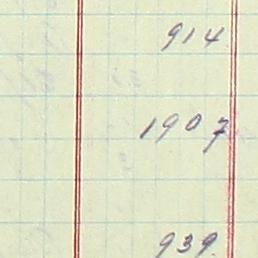 914
1907
939.